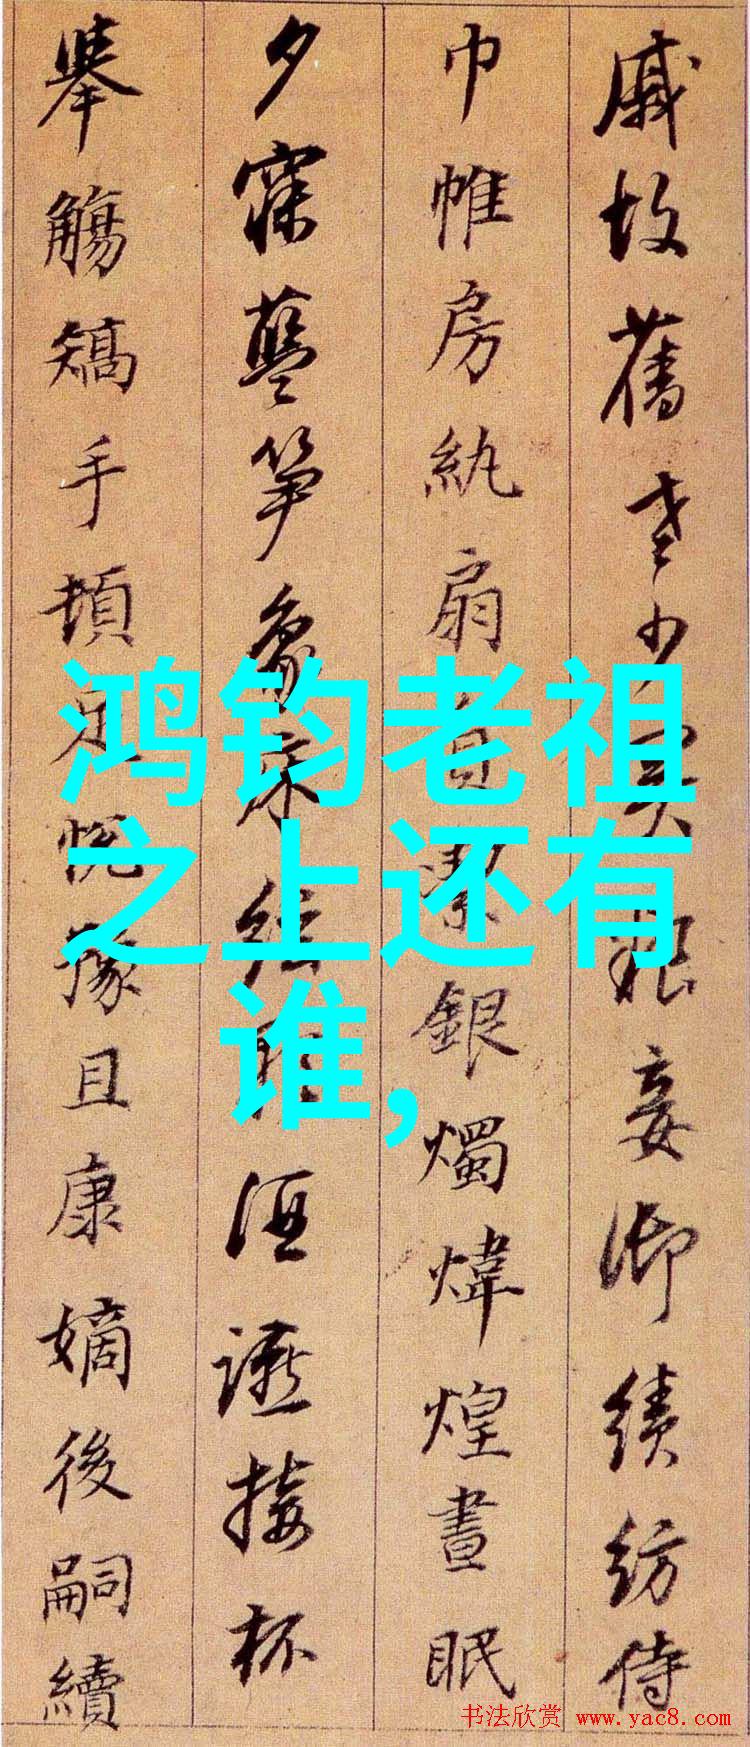 戚故舊老少異粮妾御績紡侍
巾帷房紈扇員絜銀燭煒煌晝眠
夕寐藍笋象床絃歌酒讌接杯
舉觴矯手頓足悅豫且康嫡後嗣續
鸿钧老祖
之上还有
谁,
书法欣赏 www.yac8.com